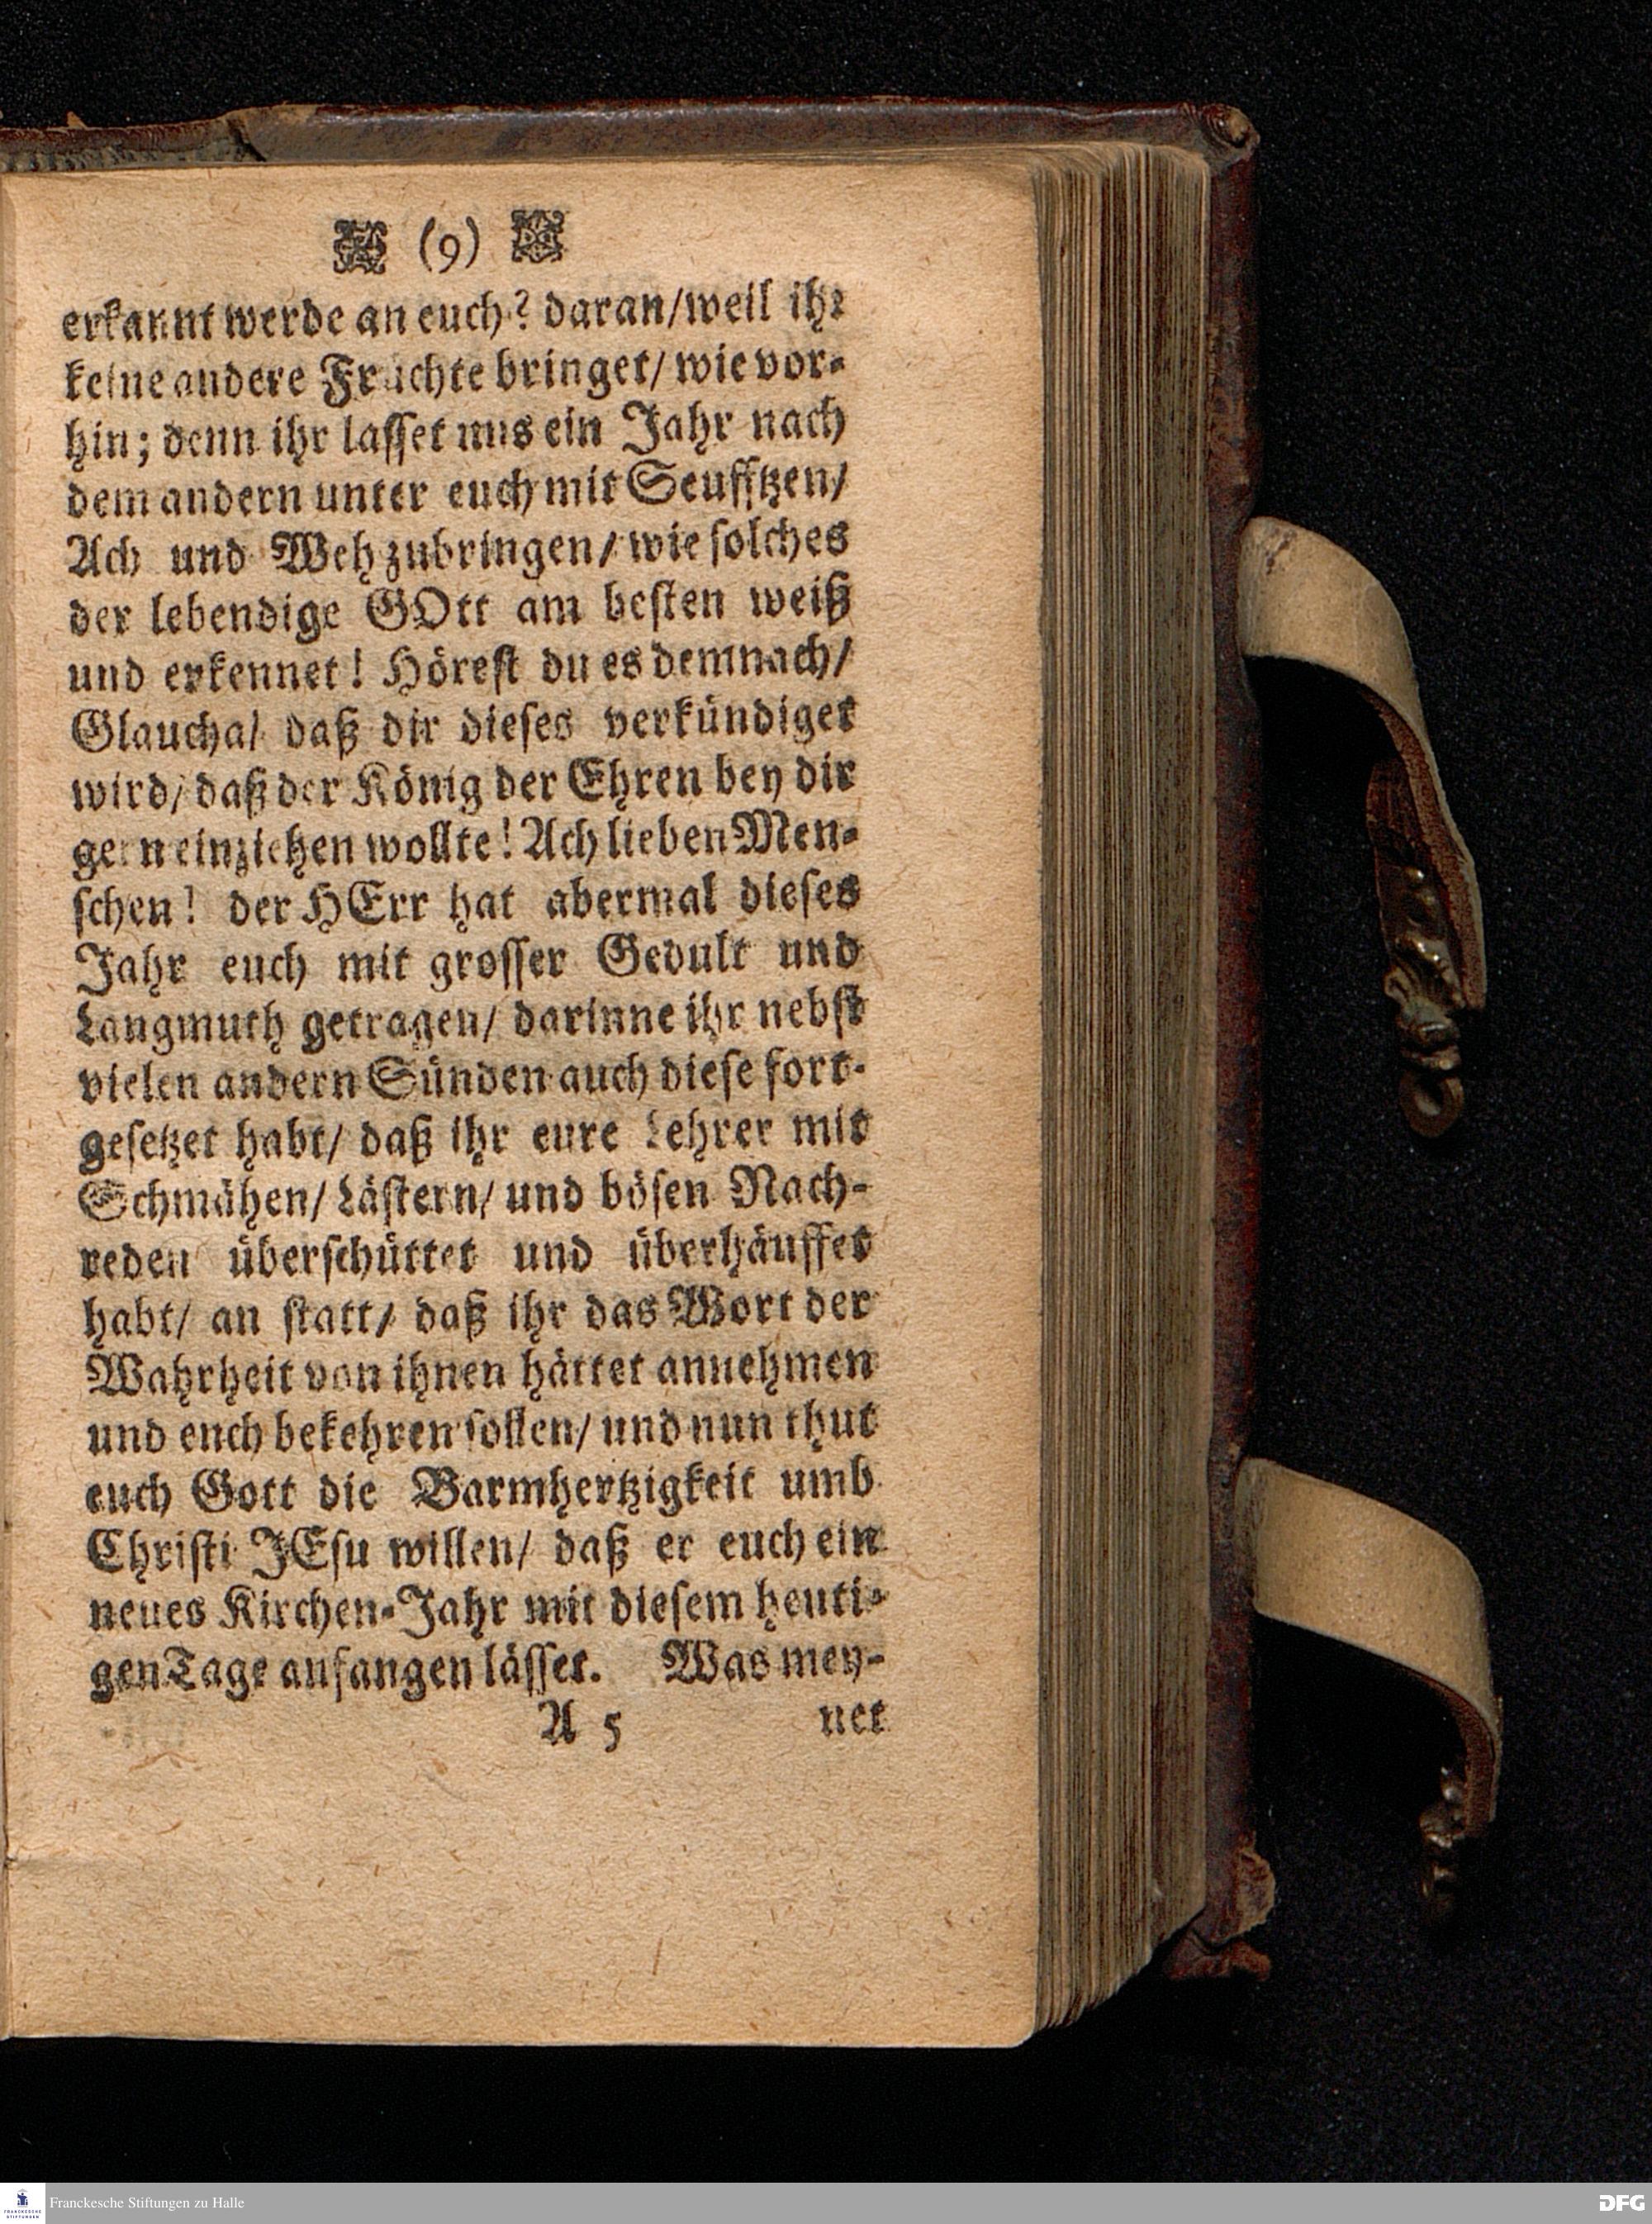 (9)
erkannt werde an euch? daran/weil ihr
keine andere Früchte bringet/ wie vor-
hin; denn ihr lasset uns ein Jahr nach
dem andern unter euch mit Seufftzen/
Ach und Weh zubringen/ wie solches
der lebendige GOtt am besten weiß
und erkennet! Hörest du es demnach/
Glaucha/ daß dir dieses verkündiget
wird/ daß der König der Ehren bey dir
gern einziehen wollte! Ach lieben Men-
schen! der HErr hat abermal dieses
Jahr euch mit grosser Gedult und
Langmuth getragen/ darinne ihr nebst
vielen andern Sünden auch diese fort-
gesetzet habt/ daß ihr eure Lehrer mit
Schmähen/ Lästern/ und bösen Nach-
reden überschüttet und überhäuffet
habt/ an statt/ daß ihr das Wort der
Wahrheit von ihnen hättet annehmen
und euch bekehren sollen/ und nun thut
euch Gott die Barmhertzigkeit umb
Christi JEsu willen/ daß er euch ein
neues Kirchen-Jahr mit diesem heuti-
gen Tage anfangen lässet. Was mey-
A 5 net
Franckesche Stiftungen zu Halle
DFG